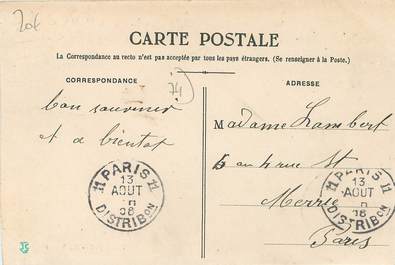 20f
CARTE POSTALE
La Correspondance au recto n'est pas acceptée par tous les pays étrangers. (Se renseigner à la Poste.)
CORRESPONDANCE
ADRESSE
74
bon souvenir
et a bientot
Madame Lambert
rue St
Paris
PARIS 11
13
AOUT
DISTRIBon
11 PARIS 11
13
AOUT
DISTRIBon